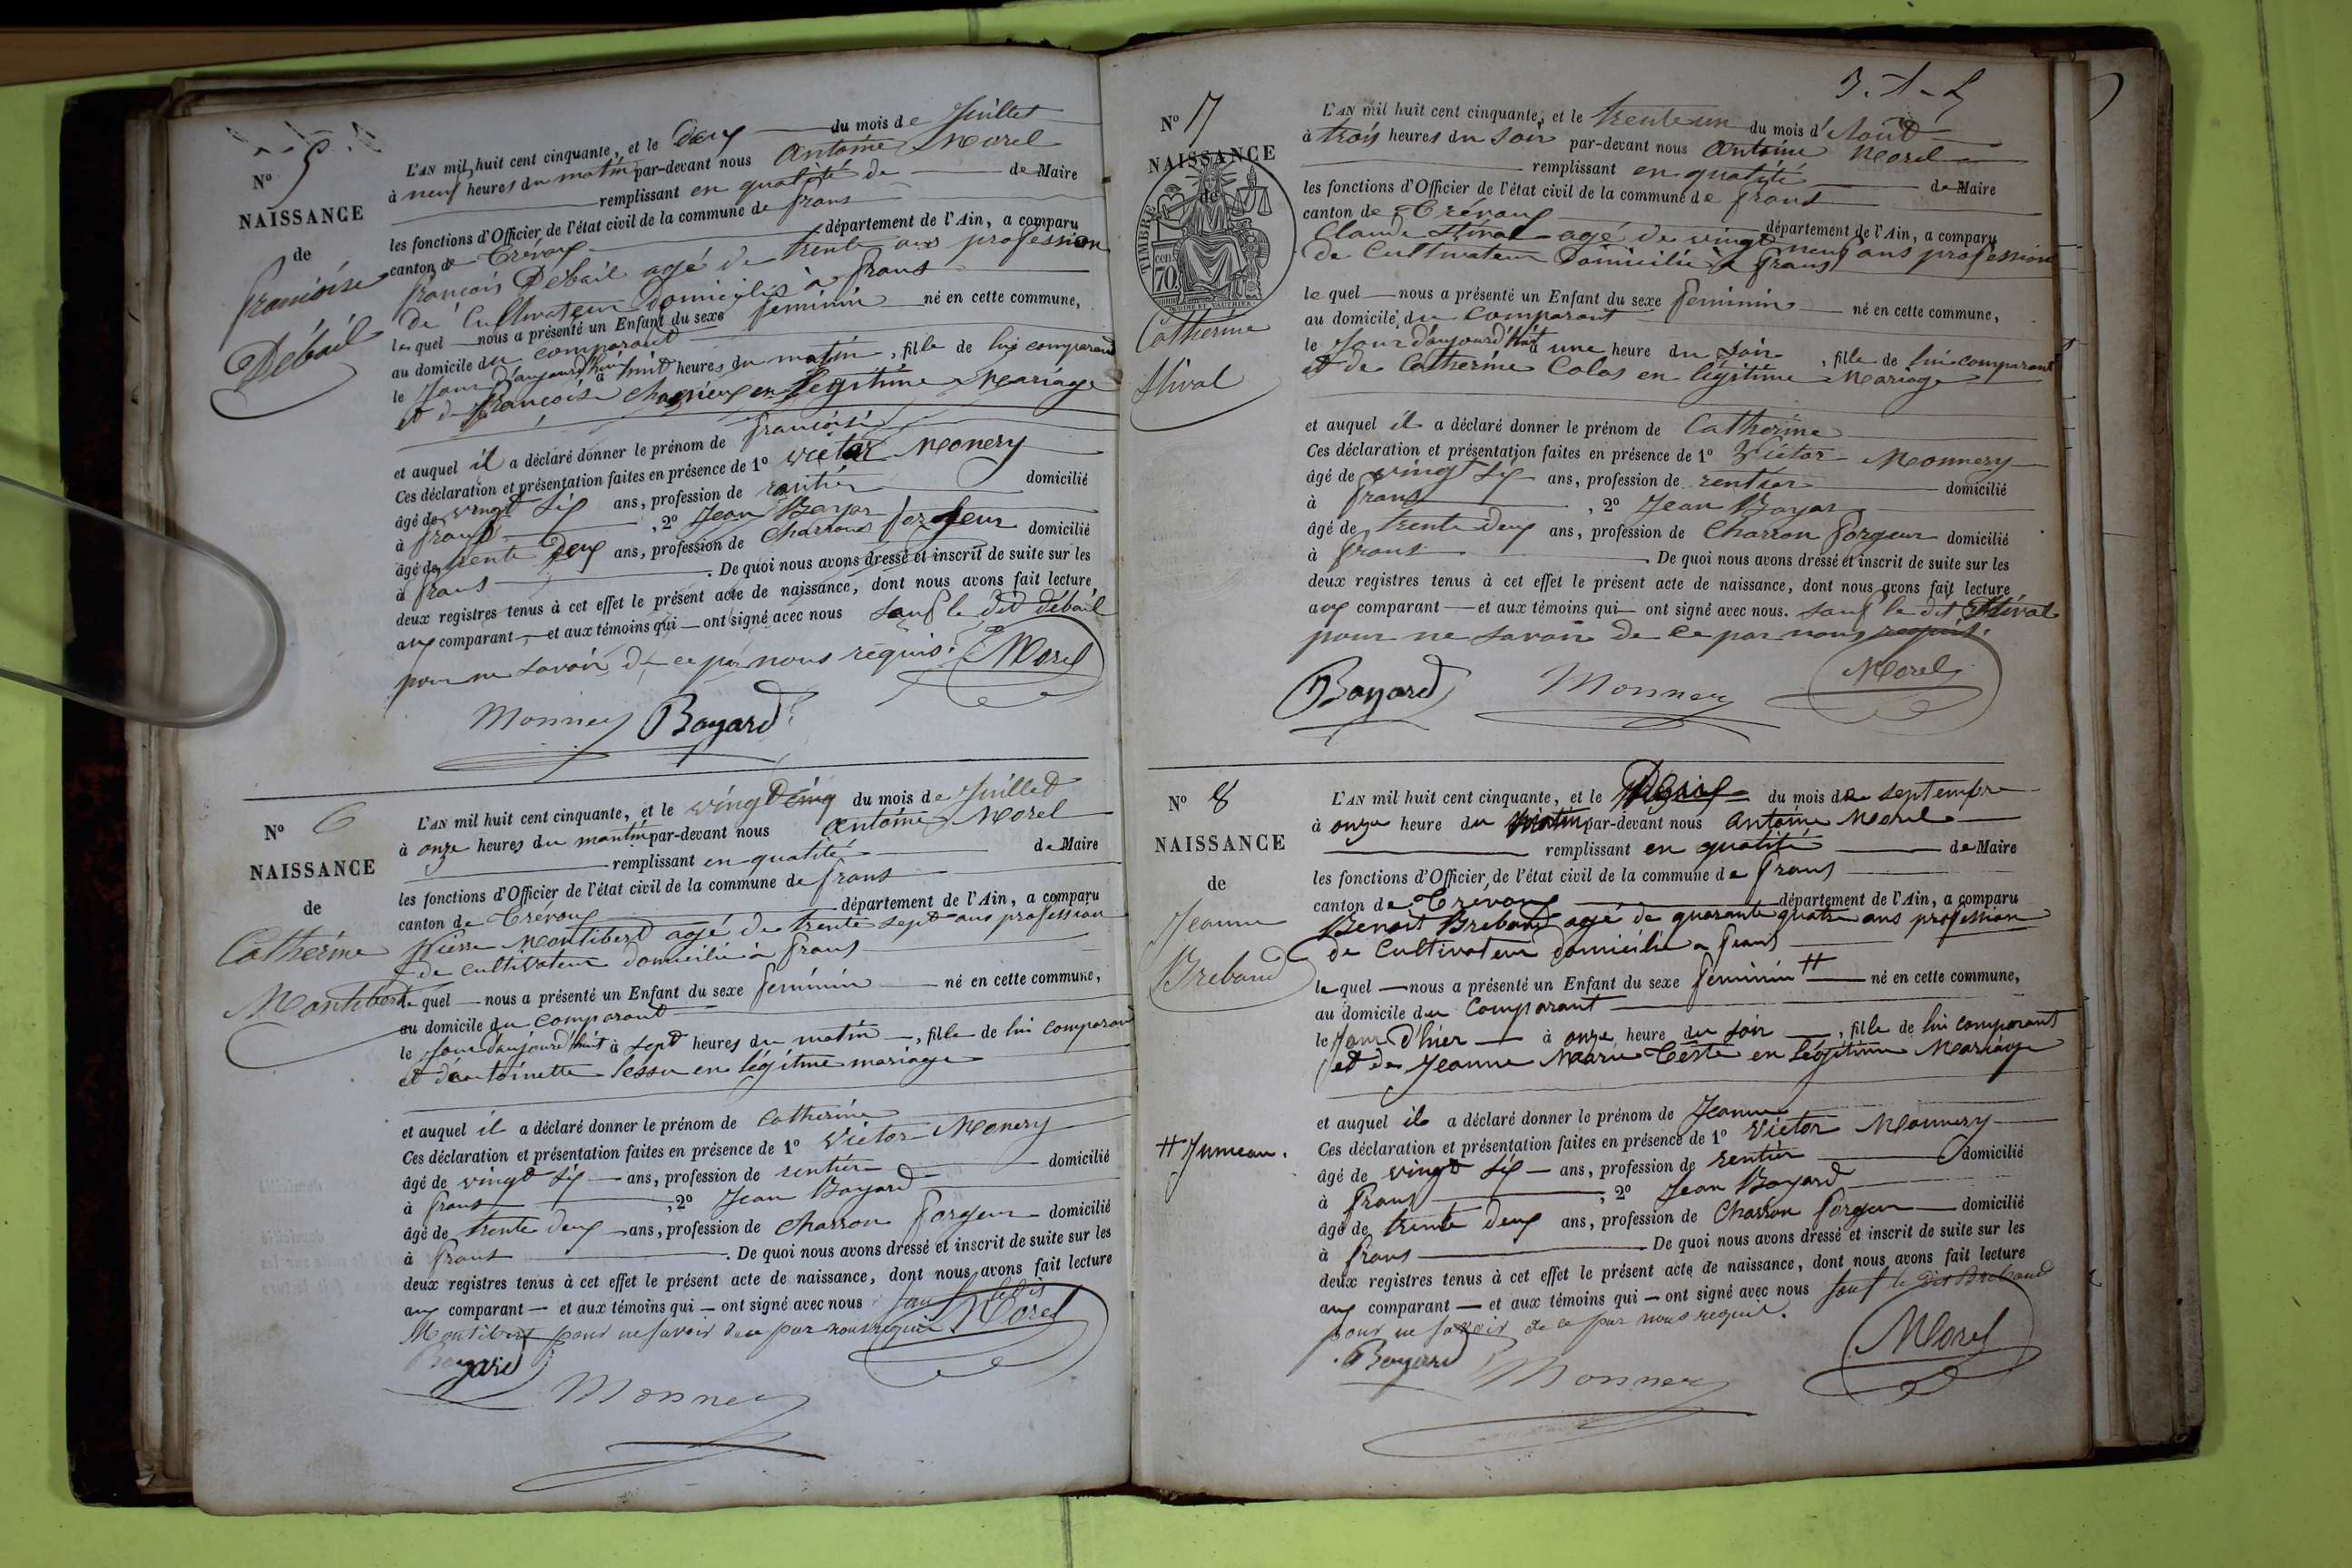 N° 5
NAISSANCE
de
françoise
Débail
L'AN mil huit cent cinquante, et le Deux du mois de Juillet
à neuf heures du matin par-devant nous Antoine Morel
remplissant en qualité de de Maire
les fonctions d'Officier de l'état civil de la commune de frans
canton de Trévoux département de l'Ain, a comparu
françois Débail agé de trente ans profession
de Cultivateur domicilié à frans
le quel nous a présenté un Enfant du sexe feminin né en cette commune,
au domicile du comparant
le Jour d'aujourd'hui à huit heures du matin, fille de lui comparant
et de françoise en Légitime Mariage
et auquel il a déclaré donner le prénom de françoise
Ces déclaration et présentation faites en présence de 1° Victor Monery
âgé de vingt six ans, profession de rentier domicilié
à frans, 2° Jean Bayar
âgé de trente Deux ans, profession de Charron forgeur domicilié
à frans. De quoi nous avons dressé et inscrit de suite sur les
deux registres tenus à cet effet le présent acte de naissance, dont nous avons fait lecture
aux comparant et aux témoins qui ont signé avec nous sauf le dit débail
pour ne savoir de ce par nous requis. Morel
Monnery Bayard
N° 6
NAISSANCE
de
Catherine
Montibert
L'AN mil huit cent cinquante, et le vingt cinq du mois de Juillet
à onze heures du mantin par-devant nous Antoine Morel
remplissant en qualité de Maire
les fonctions d'Officier de l'état civil de la commune de frans
canton de Trévoux département de l'Ain, a comparu
Pierre Montibert agé de trente sept ans profession
de cultivateur domicilié à frans
le quel nous a présenté un Enfant du sexe feminin né en cette commune,
au domicile du comparant
le Jour d'aujourd'huit à sept heures du matin, fille de lui comparant
et de antoinette en légitime mariage
et auquel il a déclaré donner le prénom de Catherine
Ces déclaration et présentation faites en présence de 1° Victor Monery
âgé de vingt six ans, profession de rentier domicilié
à frans, 2° Jean Bayard
âgé de trente deux ans, profession de Charron forgeur domicilié
à frans. De quoi nous avons dressé et inscrit de suite sur les
deux registres tenus à cet effet le présent acte de naissance, dont nous avons fait lecture
aux comparant et aux témoins qui ont signé avec nous sauf le dit
Montibert pour ne savoir de ce par nous requis Morel
Bayard
Monnery
N° 7
NAISSANCE
de
TIMBRE
cen. 70
Catherine
Stival
L'AN mil huit cent cinquante, et le trente un du mois d'Août
à trois heures du soir par-devant nous Antoine Morel
remplissant en qualité de Maire
les fonctions d'Officier de l'état civil de la commune de frans
canton de Trévoux département de l'Ain, a comparu
Claude Stival agé de vingt neuf ans profession
de Cultivateur Domicilié à frans
le quel nous a présenté un Enfant du sexe feminin né en cette commune,
au domicile du comparant
le Jour d'aujourd'huit à une heure du soir, fille de lui comparant
et de Catherine Colas en légitime Mariage
et auquel il a déclaré donner le prénom de Catherine
Ces déclaration et présentation faites en présence de 1° Victor Monnery
âgé de vingt six ans, profession de rentier domicilié
à frans, 2° Jean Bayar
âgé de trente Deux ans, profession de Charron forgeur domicilié
à frans De quoi nous avons dressé et inscrit de suite sur les
deux registres tenus à cet effet le présent acte de naissance, dont nous avons fait lecture
aux comparant et aux témoins qui ont signé avec nous. sauf le dit Stival
pour ne savoir de ce par nous requis.
Bayard Monnery Morel
N° 8
NAISSANCE
de
Jeanne
Breband
# Jumeau.
L'AN mil huit cent cinquante, et le du mois de septembre
à onze heure du matin par-devant nous Antoine Morel
remplissant en qualité de Maire
les fonctions d'Officier de l'état civil de la commune de frans
canton de Trévoux département de l'Ain, a comparu
Benoit Breband agé de quarante quatre ans profession
de Cultivateur domicilié a frans
le quel nous a présenté un Enfant du sexe feminin # né en cette commune,
au domicile du Comparant
le Jour d'hier à onze heure du soir, fille de lui comparant
et de Jeanne Marie Teste en légitime Mariage
et auquel il a déclaré donner le prénom de Jeanne
Ces déclaration et présentation faites en présence de 1° Victor Monnery
âgé de vingt six ans, profession de rentier domicilié
à frans, 2° Jean Bayard
âgé de trente deux ans, profession de Charron forgeur domicilié
à frans De quoi nous avons dressé et inscrit de suite sur les
deux registres tenus à cet effet le présent acte de naissance, dont nous avons fait lecture
aux comparant et aux témoins qui ont signé avec nous sauf le dit Breband
pour ne savoir de ce par nous requis.
Bayard Monnery Morel